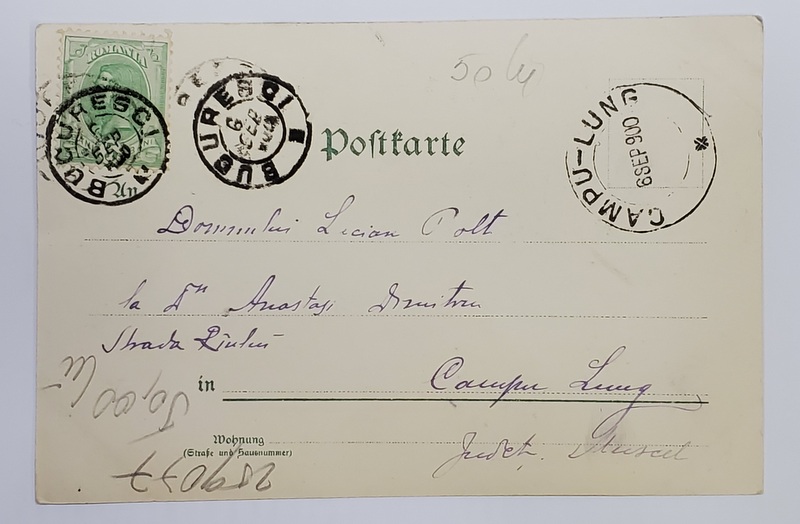 ROMANIA
BUCURESCI
BUCURESCI
6 SEP
50 lei
CAMPU-LUNG
6 SEP 900
Postkarte
An
Domnului Lucian Bolt
la Dn Anastasi Dimitriu
Strada Rîului
in Campu Lung
Wohnung
(Straße und Hausnummer)
Județ. Muscel
50,00 lei